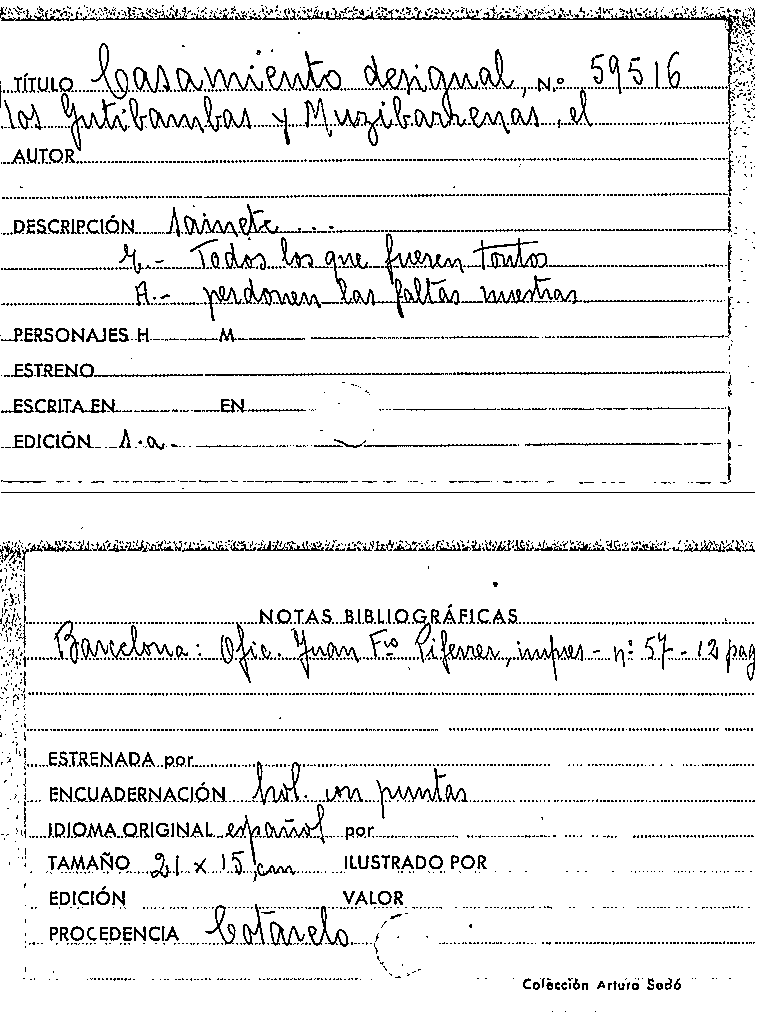 TÍTULO Casamiento desigual, N.º 59516
los Gutibambas y Muzibarrenas, el
AUTOR
DESCRIPCIÓN sainete ...
E.- Todos los que fueren tontos
A.- perdonen las faltas nuestras
PERSONAJES H M
ESTRENO
ESCRITA EN EN
EDICIÓN s.a.
NOTAS BIBLIOGRÁFICAS
Barcelona: Ofic. Juan Fco Piferrer, impres - nº 57 - 12 pag
ESTRENADA por
ENCUADERNACIÓN hol. con puntas
IDIOMA ORIGINAL español por
TAMAÑO 21 x 15 cm ILUSTRADO POR
EDICIÓN VALOR
PROCEDENCIA Cotarelo
Colección Arturo Sedó